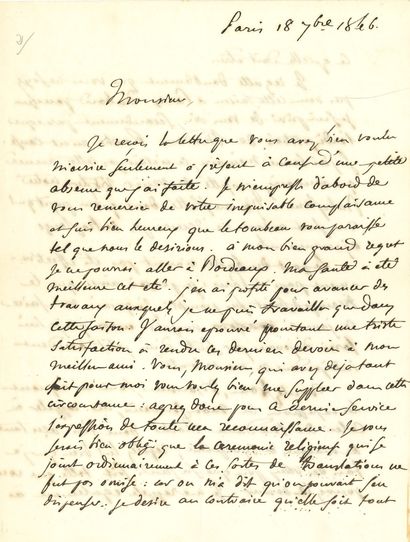 Paris 18 7bre 1846.
Monsieur,
Je reçois la lettre que vous avez bien voulu
m'ecrire seulement à présent à cause d'une petite
absence que j'ai faite. Je m'empresse d'abord de
vous remercier de votre inepuisable complaisance
et suis bien heureux que le tombeau vous paraisse
tel que nous le desirions. à mon bien grand regret
je ne pourrai aller à Bordeaux. Ma santé a été
meilleure cet eté. j'en ai profité pour avancer des
travaux auxquels je ne puis travailler que dans
cette saison. J'aurais eprouvé pourtant une triste
satisfaction à rendre ces derniers devoirs à mon
meilleur ami. Vous, Monsieur, qui avez deja tant
fait pour moi vous voulez bien me suppléer dans cette
circonstance : agreez donc pour ce dernier service
l'expression de toute ma reconnaissance. Je vous
serais bien obligé que la ceremonie religieuse qui se
joint ordinairement à ces sortes de translations ne
fut pas omise : car on m'a dit qu'on pouvait s'en
dispenser. je desire au contraire qu'elle soit tout